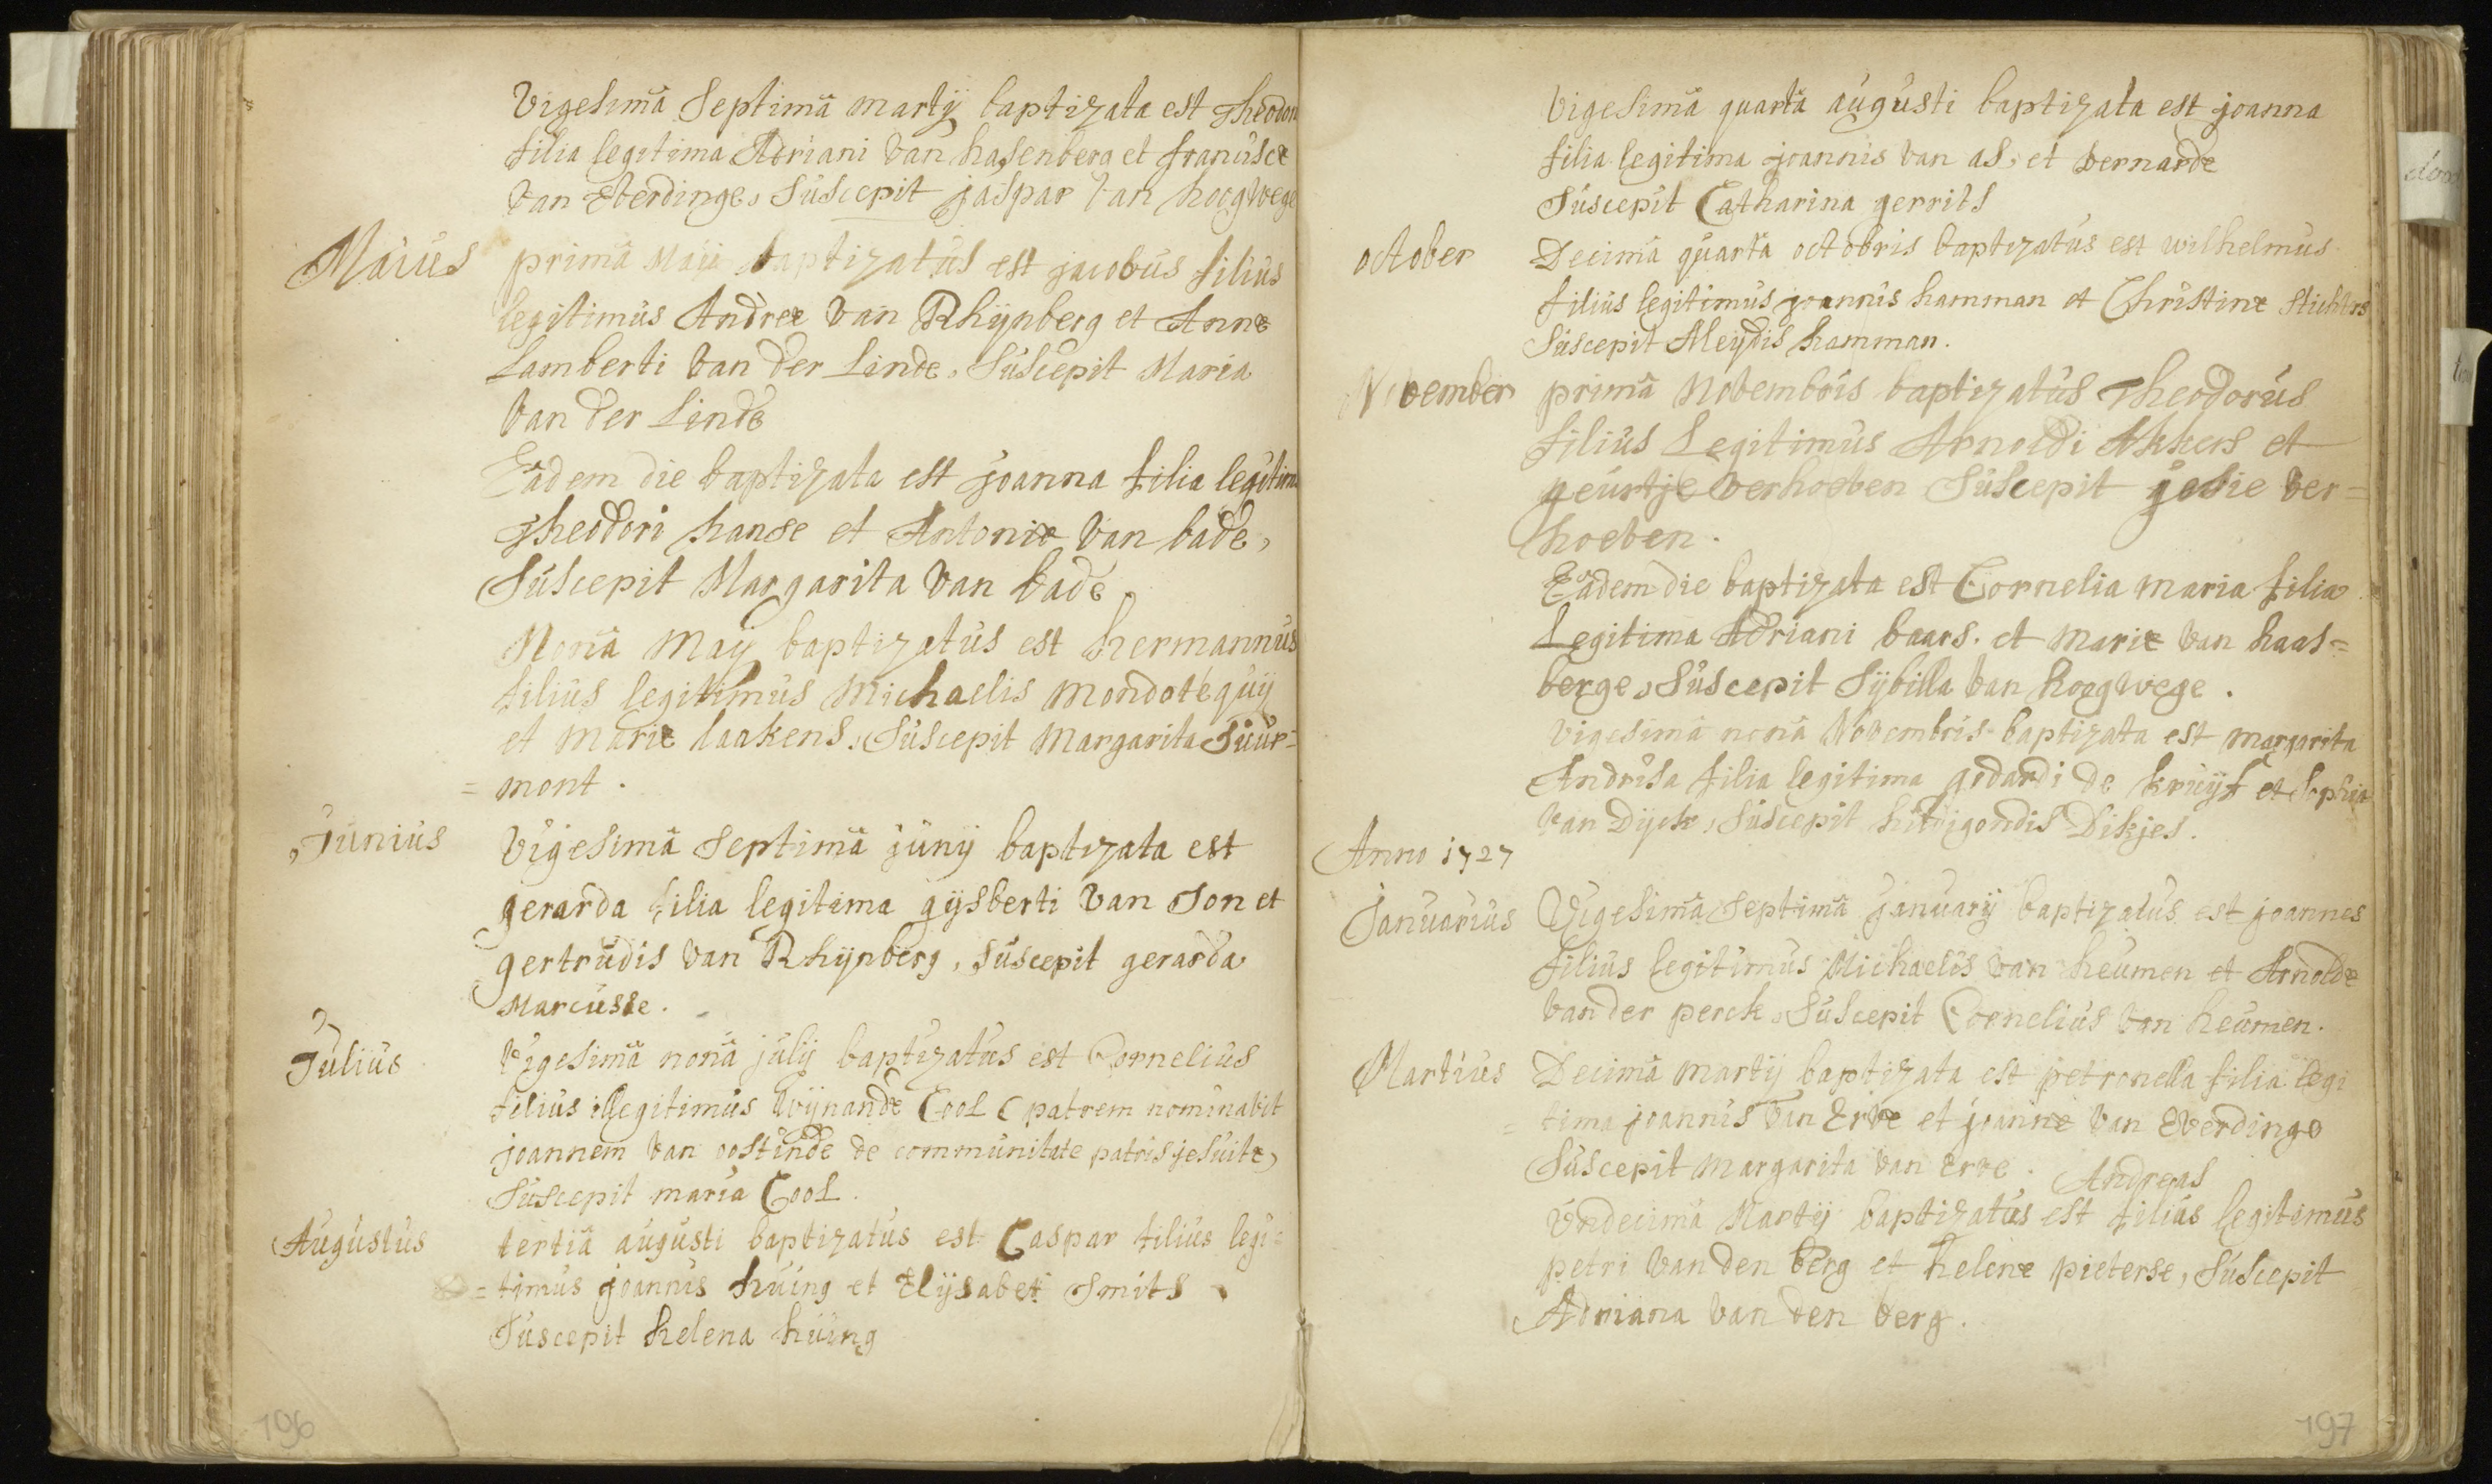 Vigesimâ Septimâ martij baptizata est Theodor
filia legitima Adriani van hasenberg et franciscæ
van Everdinge, Suscepit jaspar van hoogwege
Maius
primâ Maii baptizatus est jacobus filius
legitimus Andreæ van Rhijnberg et Annæ
Lamberti van der Linde, Suscepit Maria
van der Linde
Eâdem die baptizata est joanna filia legitim
Theodori hanse et Antoniæ van bade,
Suscepit Margarita van bade.
Nonâ Maij baptizatus est hermannus
filius legitimus Michaelis Mondoteguij
et Mariæ laakens, Suscepit Margarita Suur=
= mont.
Junius
Vigesimâ Septimâ junij baptizata est
gerarda filia legitima gijsberti van Son et
gertrudis van Rhijnberg, Suscepit gerarda
Marcusse.
Julius
Vigesimâ nonâ julij baptizatus est Cornelius
filius illegitimus Wijnandæ Cool (patrem nominavit
joannem van oostinde de communitate patris jesuitæ)
Suscepit maria Cool.
Augustus
tertiâ augusti baptizatus est Caspar filius legi=
= timus joannis huing et Elijsabet Smits
Suscepit helena huing
196
Vigesimâ quartâ augusti baptizata est joanna
filia legitima joannis van as, et bernardæ
Suscepit Catharina gerrits
october
Decimâ quartâ octobris baptizatus est wilhelmus
filius legitimus joannis hamman et Christinæ Stichters
Suscepit Aleijdis hamman.
November
primâ Novembris baptizatus Theodorus
filius Legitimus Arnoldi Akkers et
geurtje verhoeven Suscepit josie ver=
hoeven.
Eâdem die baptizata est Cornelia Maria filia
Legitima Adriani baars. et Mariæ van haas=
berge, Suscepit Sijbilla van hoogwege.
Vigesimâ nonâ Novembris baptizata est Margarita
Andrisa filia legitima godardi de kruijf et Sophia
van Dijck, Suscepit Dikjes.
Anno 1727
Januarius
Vigesimâ Septimâ januarij baptizatus est joannes
filius legitimus Michaelis van heumen et Arnoldæ
vander perck, Suscepit Cornelius van heumen.
Martius
Decimâ Martij baptizata est petronella filia legi
= tima joannis van Erve et joannæ van Everdinge
Suscepit Margarita van Erve.
Andreas
Undecimâ Martij baptizatus est filius legitimus
petri van den berg et helenæ pieterse, Suscepit
Adriana van den berg.
197